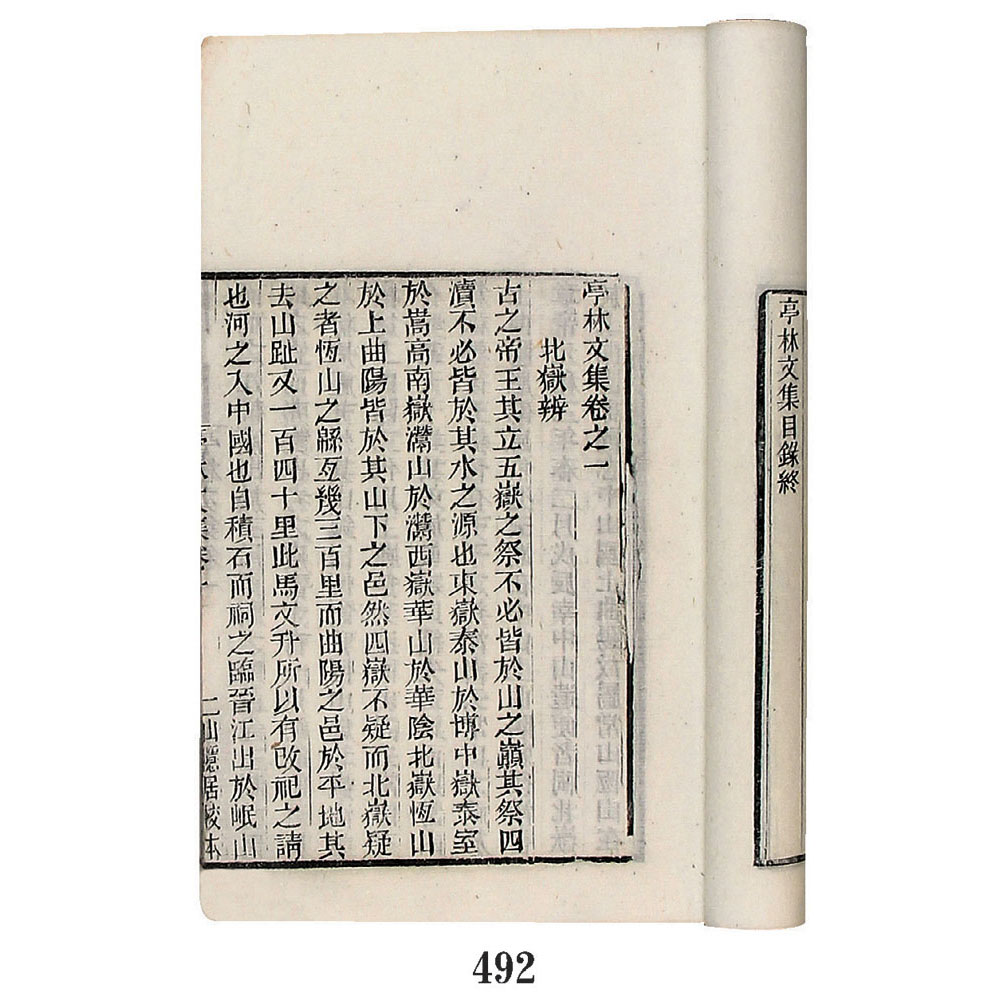 亭林文集目錄終
亭林文集卷之一
北嶽辨
古之帝王其立五嶽之祭不必皆於山之巔其祭四
瀆不必皆於其水之源也東嶽泰山於博中嶽泰室
於嵩高南嶽灊山於灊西嶽華山於華陰北嶽恆山
於上曲陽皆於其山下之邑然四嶽不疑而北嶽疑
之者恆山之緜亙幾三百里而曲陽之邑於平地其
去山趾又一百四十里此馬文升所以有改祀之請
也河之入中國也自積石而祠之臨晉江出於岷山
492